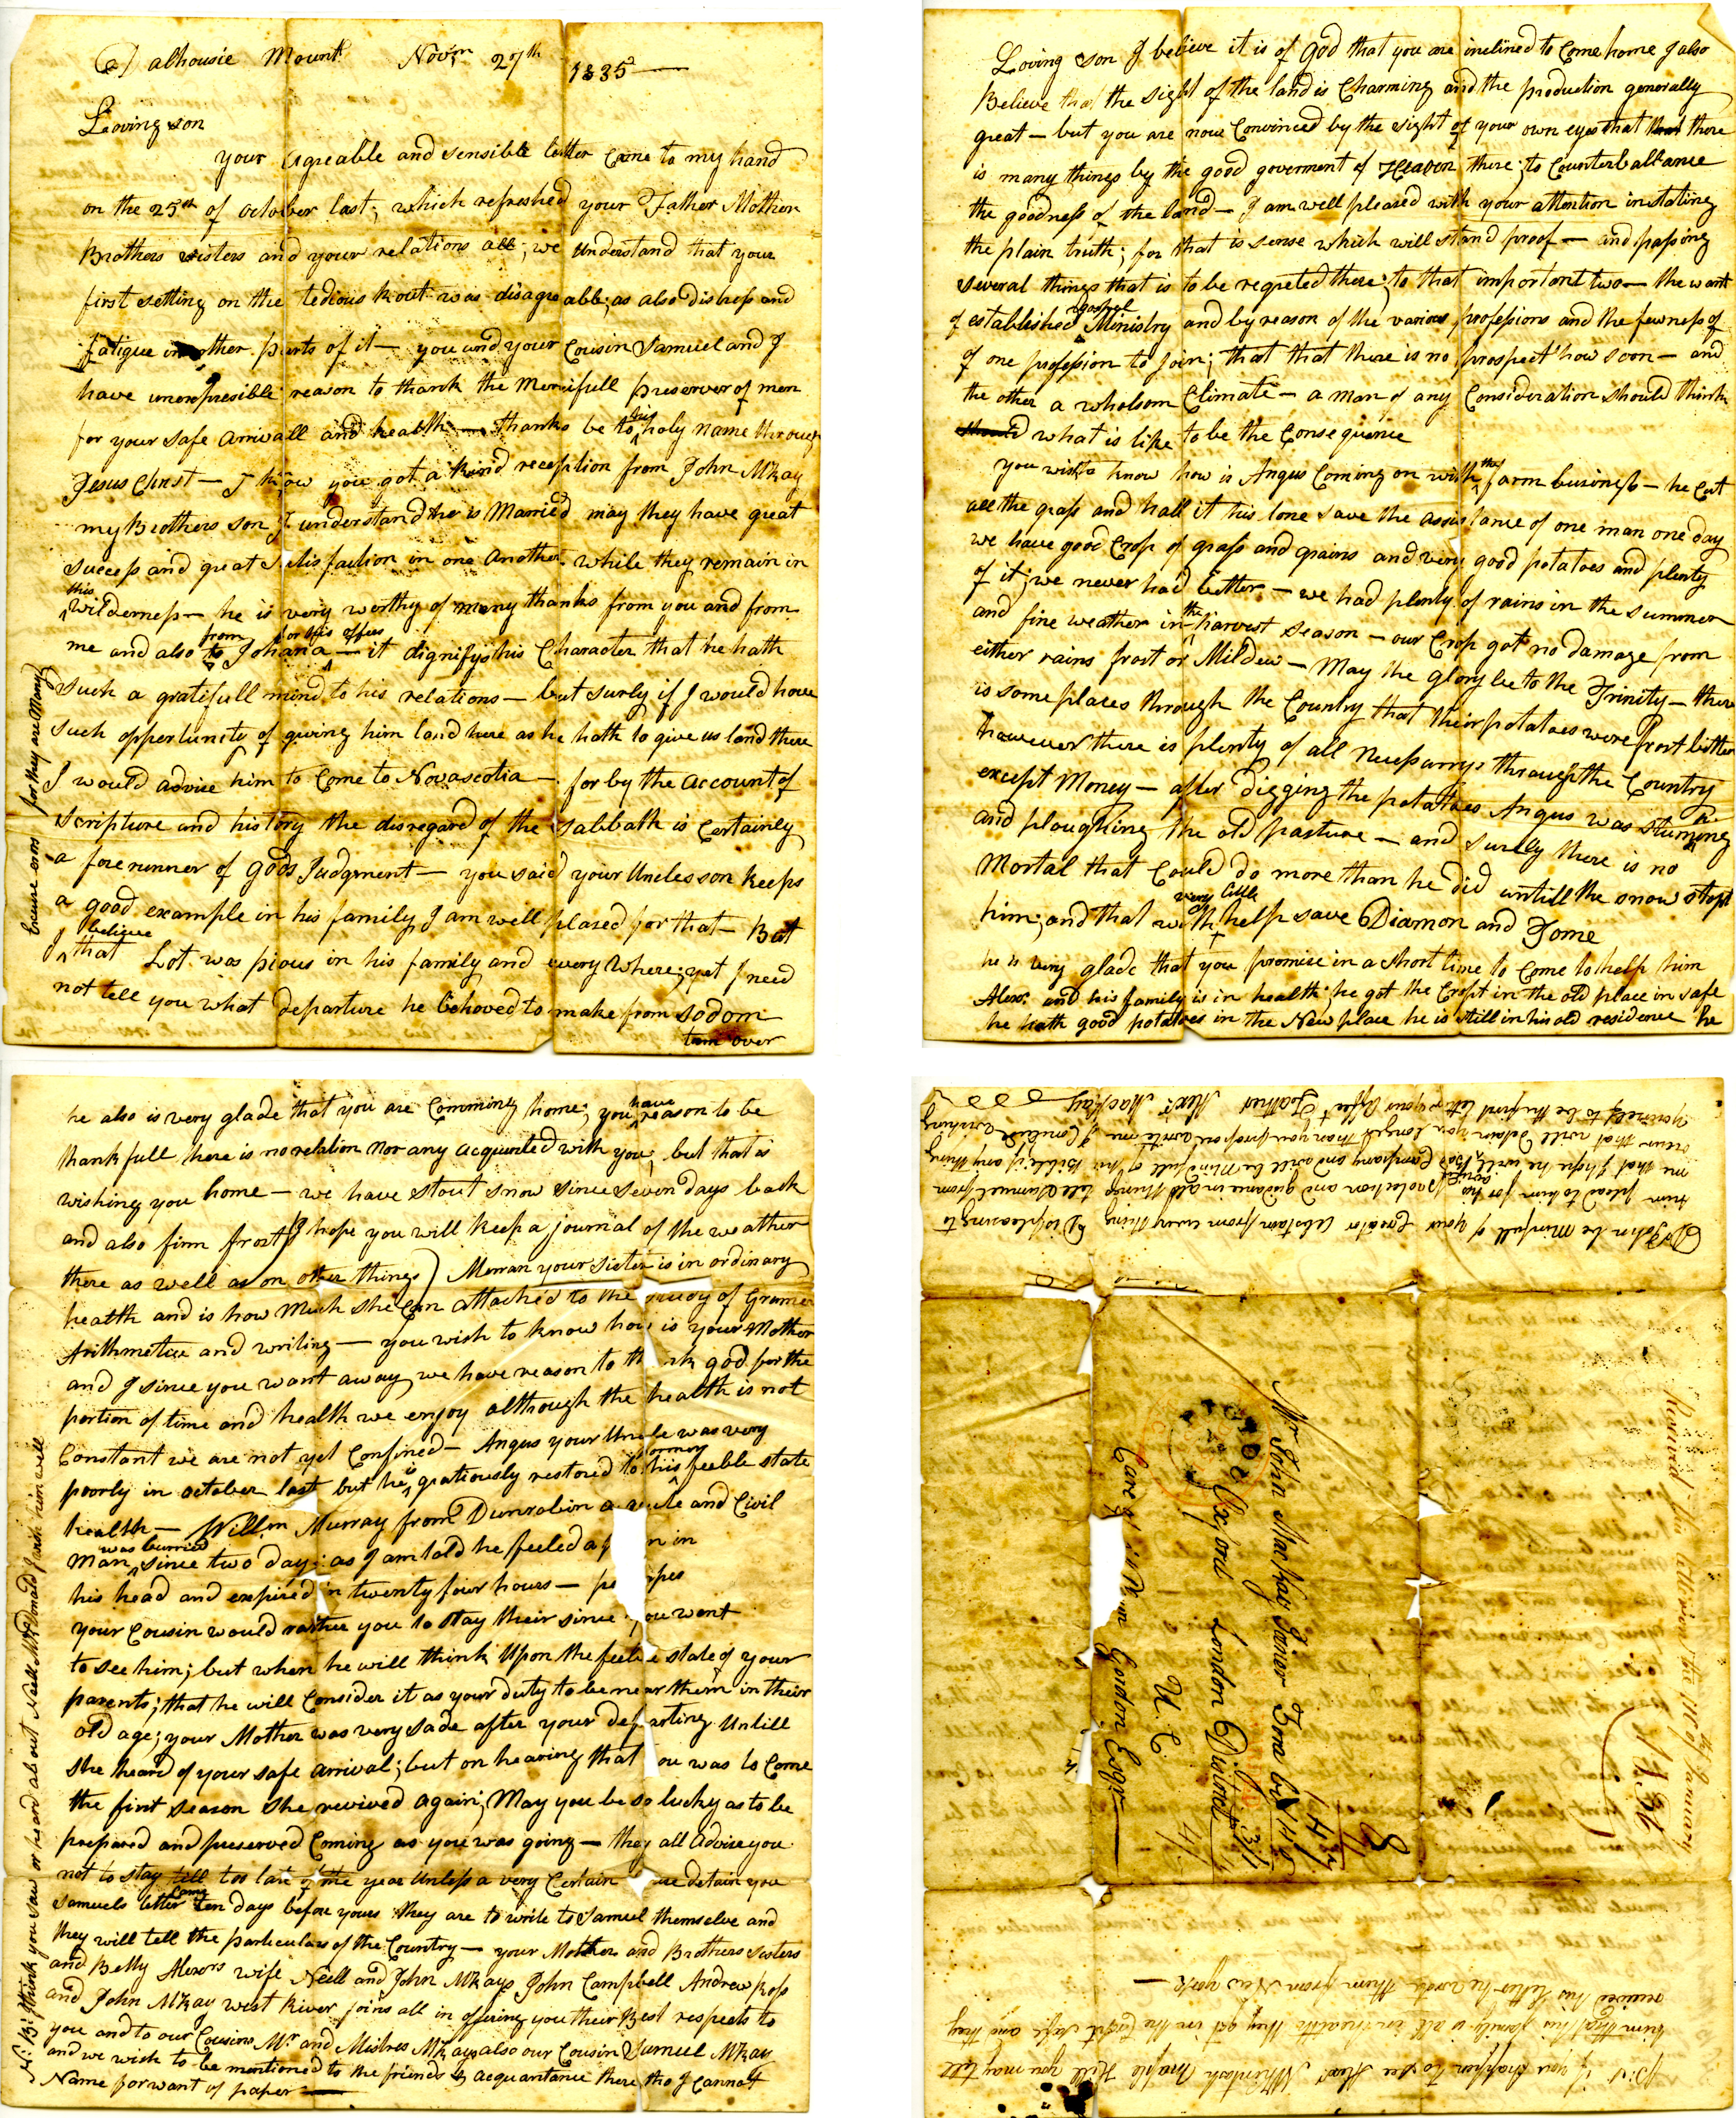 Dalhousie Mount Novm 27th 1835
Loving son
your agreable and sensible letter came to my hand
on the 25th of october last; which refreshed your Father Mother
Brothers sisters and your relations all; we understand that your
first setting on the tedious rout was disagreable; as also distress and
fatigue in other parts of it — you and your Cousin Samuel and I
have unexpresible reason to thank the Mercifull preserver of men
for your safe arrivall and health — thanks be to his holy name through
Jesus Christ — I know you got a kind reception from John McKay
my Brothers son I understand he is Married may they have great
success and great satisfaction in one another while they remain in
this wilderness — he is very worthy of many thanks from you and from
me and also from Johana for his offers — it dignifys his Character that he hath
such a gratifull mind to his relations — but surly if I would have
such oppertunity of giving him land here as he hath to give us land there
I would advise him to Come to Novascotia — for by the account of
scripture and history the disregard of the sabbath is Certainly
a forerunner of gods Judgment — you said your Uncles son keeps
a good example in his family, I am well plased for that — But
I believe that Lot was pious in his family and every where; yet I need
not tell you what departure he behoved to make from sodom
turn over
Excuse errors for they are Many
Loving son I believe it is of god that you are inclined to Come home I also
Believe that the sight of the land is Charming and the production generally
great — but you are now Convinced by the sight of your own eyes that there
is many things by the good goverment of Heaven there; to Counterballance
the goodness of the land — I am well pleased with your attention in stating
the plain truth; for that is sense which will stand proof — and passing
several things that is to be regreted there; to that important two — the want
of established gospel Ministry and by reason of the various professions and the fewness of
of one profession to join; that that there is no prospect how soon — and
the other a wholsom Climate — a man of any Consideration should think
what is like to be the Consequence
you wish to know how is Angus Coming on with the farm business — he Cut
all the grass and hall it his lone save the assistance of one man one day
we have good Crop of grass and grains and very good potatoes and plenty
of it; we never had better — we had plenty of rains in the summer
and fine weather in the harvest season — our Crop got no damage from
either rains frost or Mildew — May the glory be to the Trinity — there
is some places through the Country that their potatoes were frost bitten
however there is plenty of all Necessarys through the Country
except Money — after digging the potatoes Angus was stumping
and ploughing the old pasture — and surely there is no
Mortal that Could do more than he did untill the snow stopt
him; and that with very little help save Diamon and Tome
he is very glade that you promise in a short time to Come to help him
Alexr and his family is in health; he got the Cropt in the old place in safe
he hath good potatoes in the New place he is still in his old residence he
he also is very glade that you are Comming home; you have reason to be
thankfull here is no relation nor any acquented with you, but that is
wishing you home — we have stout snow since seven days back
and also firm frost (I hope you will keep a journal of the weather
there as well as on other things) Merran your sister is in ordinary
health and is how Much she Can attached to the study of Gramer
Arithmetice and writing — you wish to know how is your Mother
and I since you want away, we have reason to thank god for the
portion of time and health we enjoy although the health is not
Constant we are not yet Confined — Angus your Uncle was very
poorly in october last but he is gratiously restored to his formey feeble state
health — Willm Murray from Dunrobin and Civil
man was burried since two days as I am told he feeled a in
his head and expired in twenty four hours —
your Cousin would rather you to stay their since you went
to see him; but when he will think Upon the feeble state of your
parents; that he will Consider it as your duty to be near them in their
old age; your Mother was very sade after your departing Untill
she heard of your safe arrival; but on hearing that you was to Come
the first season she revived again; May you be so lucky as to be
prepared and preserved Coming as you was going — they all Advise you
not to stay till too late of the year Unless a very Certain detain you
Samuels letter Came ten days before yours they are to write to Samuel themselve and
they will tell the particulars of the Country — your Mother and Brothers sisters
and Betty Alexrs wife Neill and John McKays John Campbell Andrew Ross
and John McKay west River joins all in offering you their Best respects to
you and to our Cousins Mr and Mistres McKay also our Cousin Samuel McKay
and we wish to be mentioned to the friends & acquantance there tho I cannot
Name for want of paper
N:B: I think you saw or heard about Neill McDonald I wish him well
Dr John be Minfull of your Creator abstain from every thing Displeasing to
him plead to him for his protection and guidance in all things tell Samuel from
me that I hope he will avoid Bad Company and will be Mindfull of his Bible if any thing
occur that will detain you longer than you propose write me I Conclude wishing
yourself to be the first letter your Affect Father Alexr MacKay
Mr John MacKay Junior Zora
Oxford London District
U.C.
Care of Gordon Esqr
Received this letter on the of January
1836
P:S: if you happen to see Alexr McIntosh Maple Hill you may tell
him that his family is all in health they got in the Cropt safe and they
received his letter he wrote them from New york —